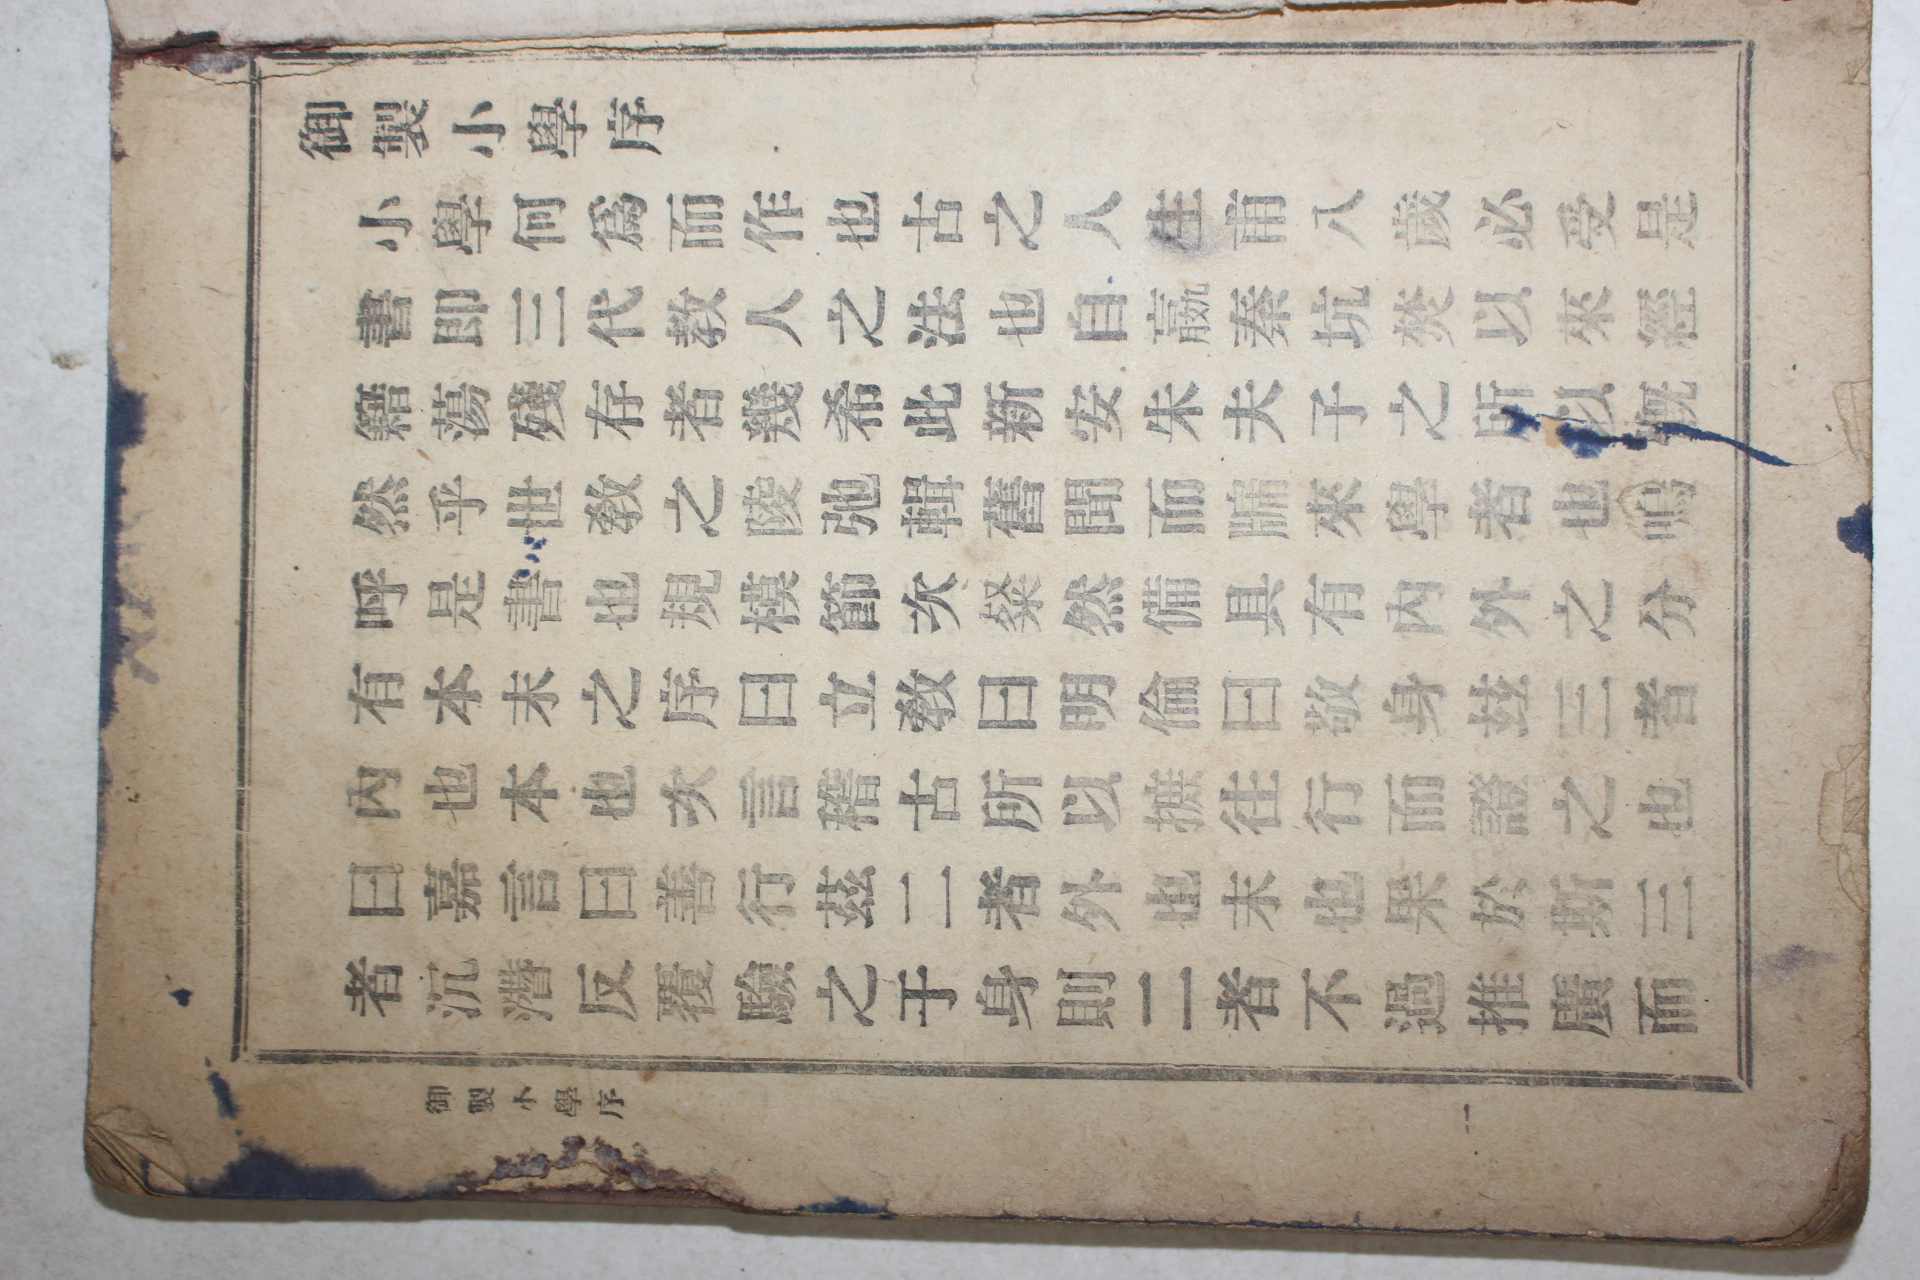 御製小學序
小學何爲而作也古之人生甫八歲必受是
書卽三代敎人之法也自嬴秦坑焚以來經
籍蕩殘存者幾希此新安朱夫子之所以慨
然乎世敎之陵弛輯舊聞而牖來學者也嗚
呼是書也規模節次粲然備具有內外之分
有本末之序曰立敎曰明倫曰敬身玆三者
內也本也次言稽古所以摭往行而證之也
曰嘉言曰善行玆二者外也末也果於斯三
者沉潛反覆驗之于身則二者不過推廣而
御製小學序
一